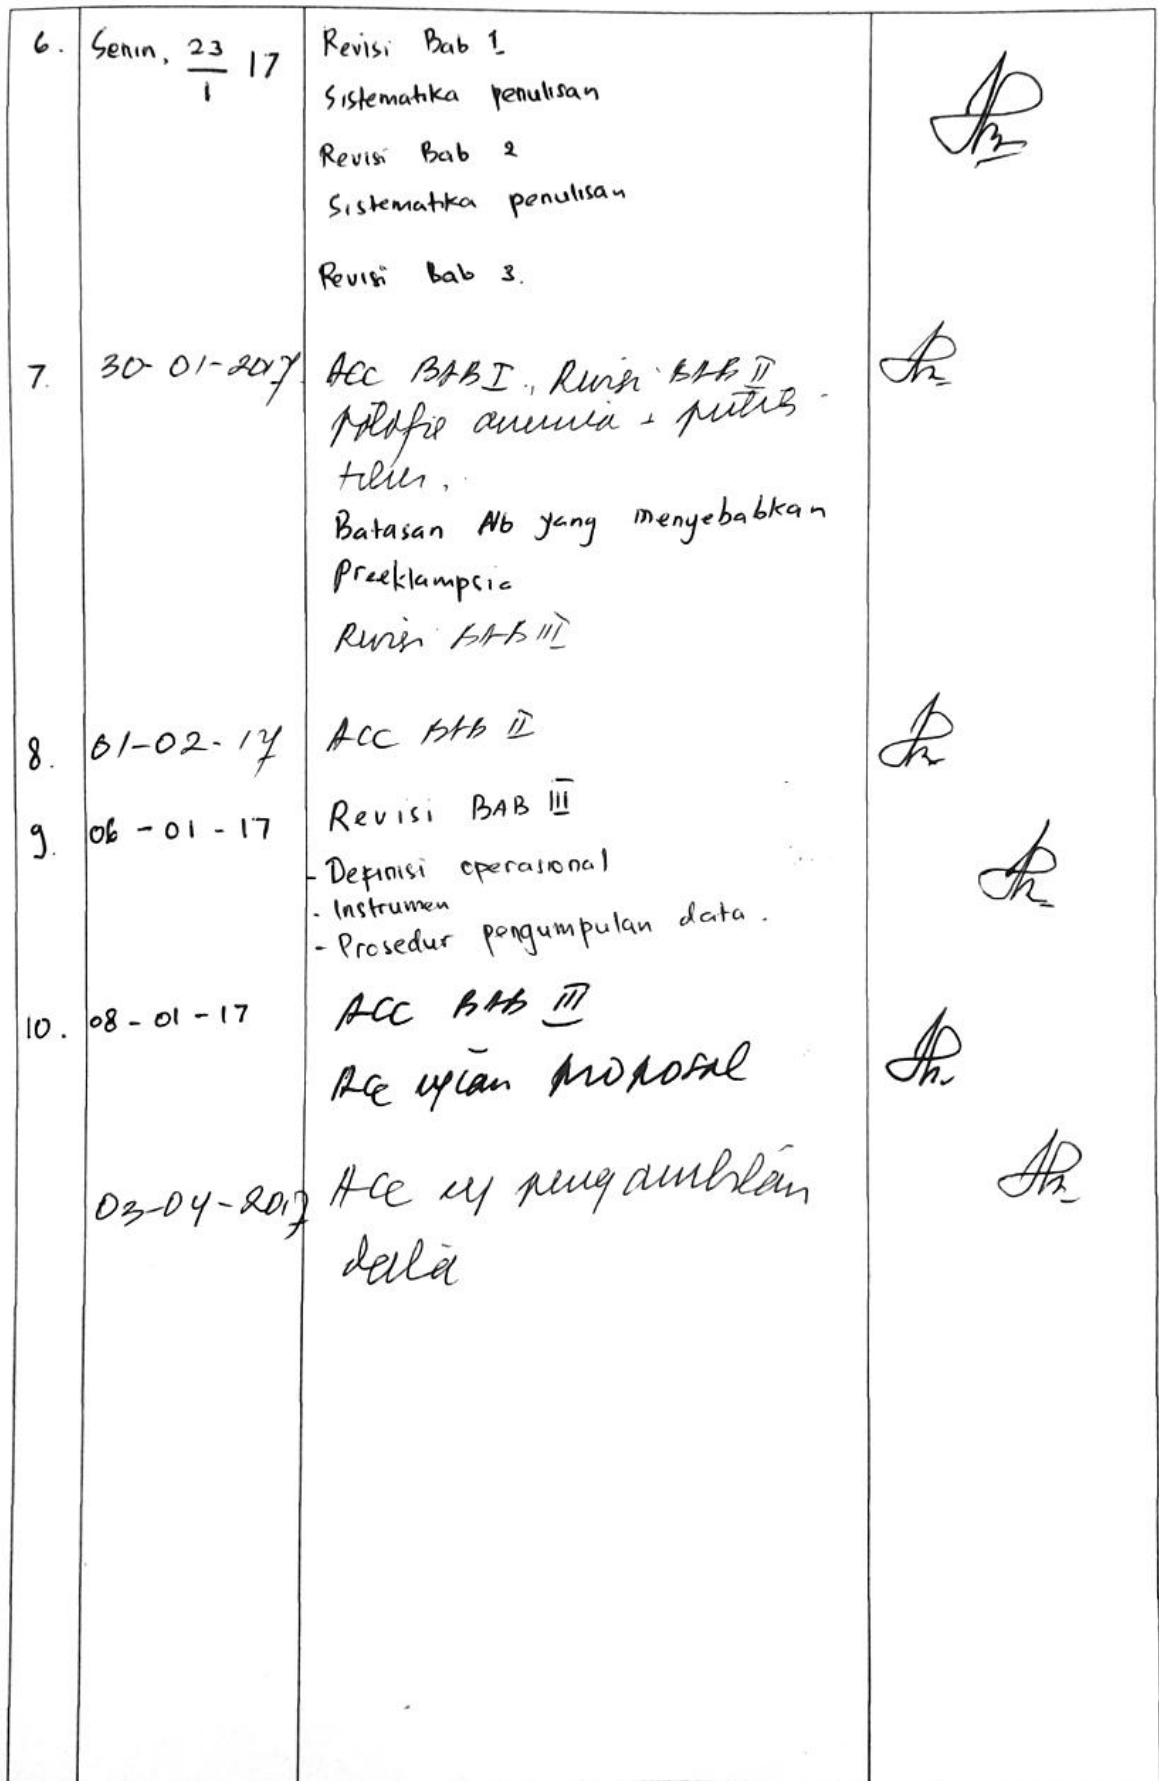 6. Senin, 23/1 17 Revisi Bab 1
Sistematika penulisan
Revisi Bab 2
Sistematika penulisan
Revisi Bab 3.
7. 30-01-2017 ACC BAB I, Revisi BAB II
anemia
Batasan Hb yang menyebabkan
Preeklampsia
Revisi BAB III
8. 01-02-17 ACC BAB II
9. 06-01-17 Revisi BAB III
- Definisi operasional
- Instrumen
- Prosedur pengumpulan data.
10. 08-01-17 ACC BAB III
Acc ujian proposal
03-04-2017 Acc pengambilan
data